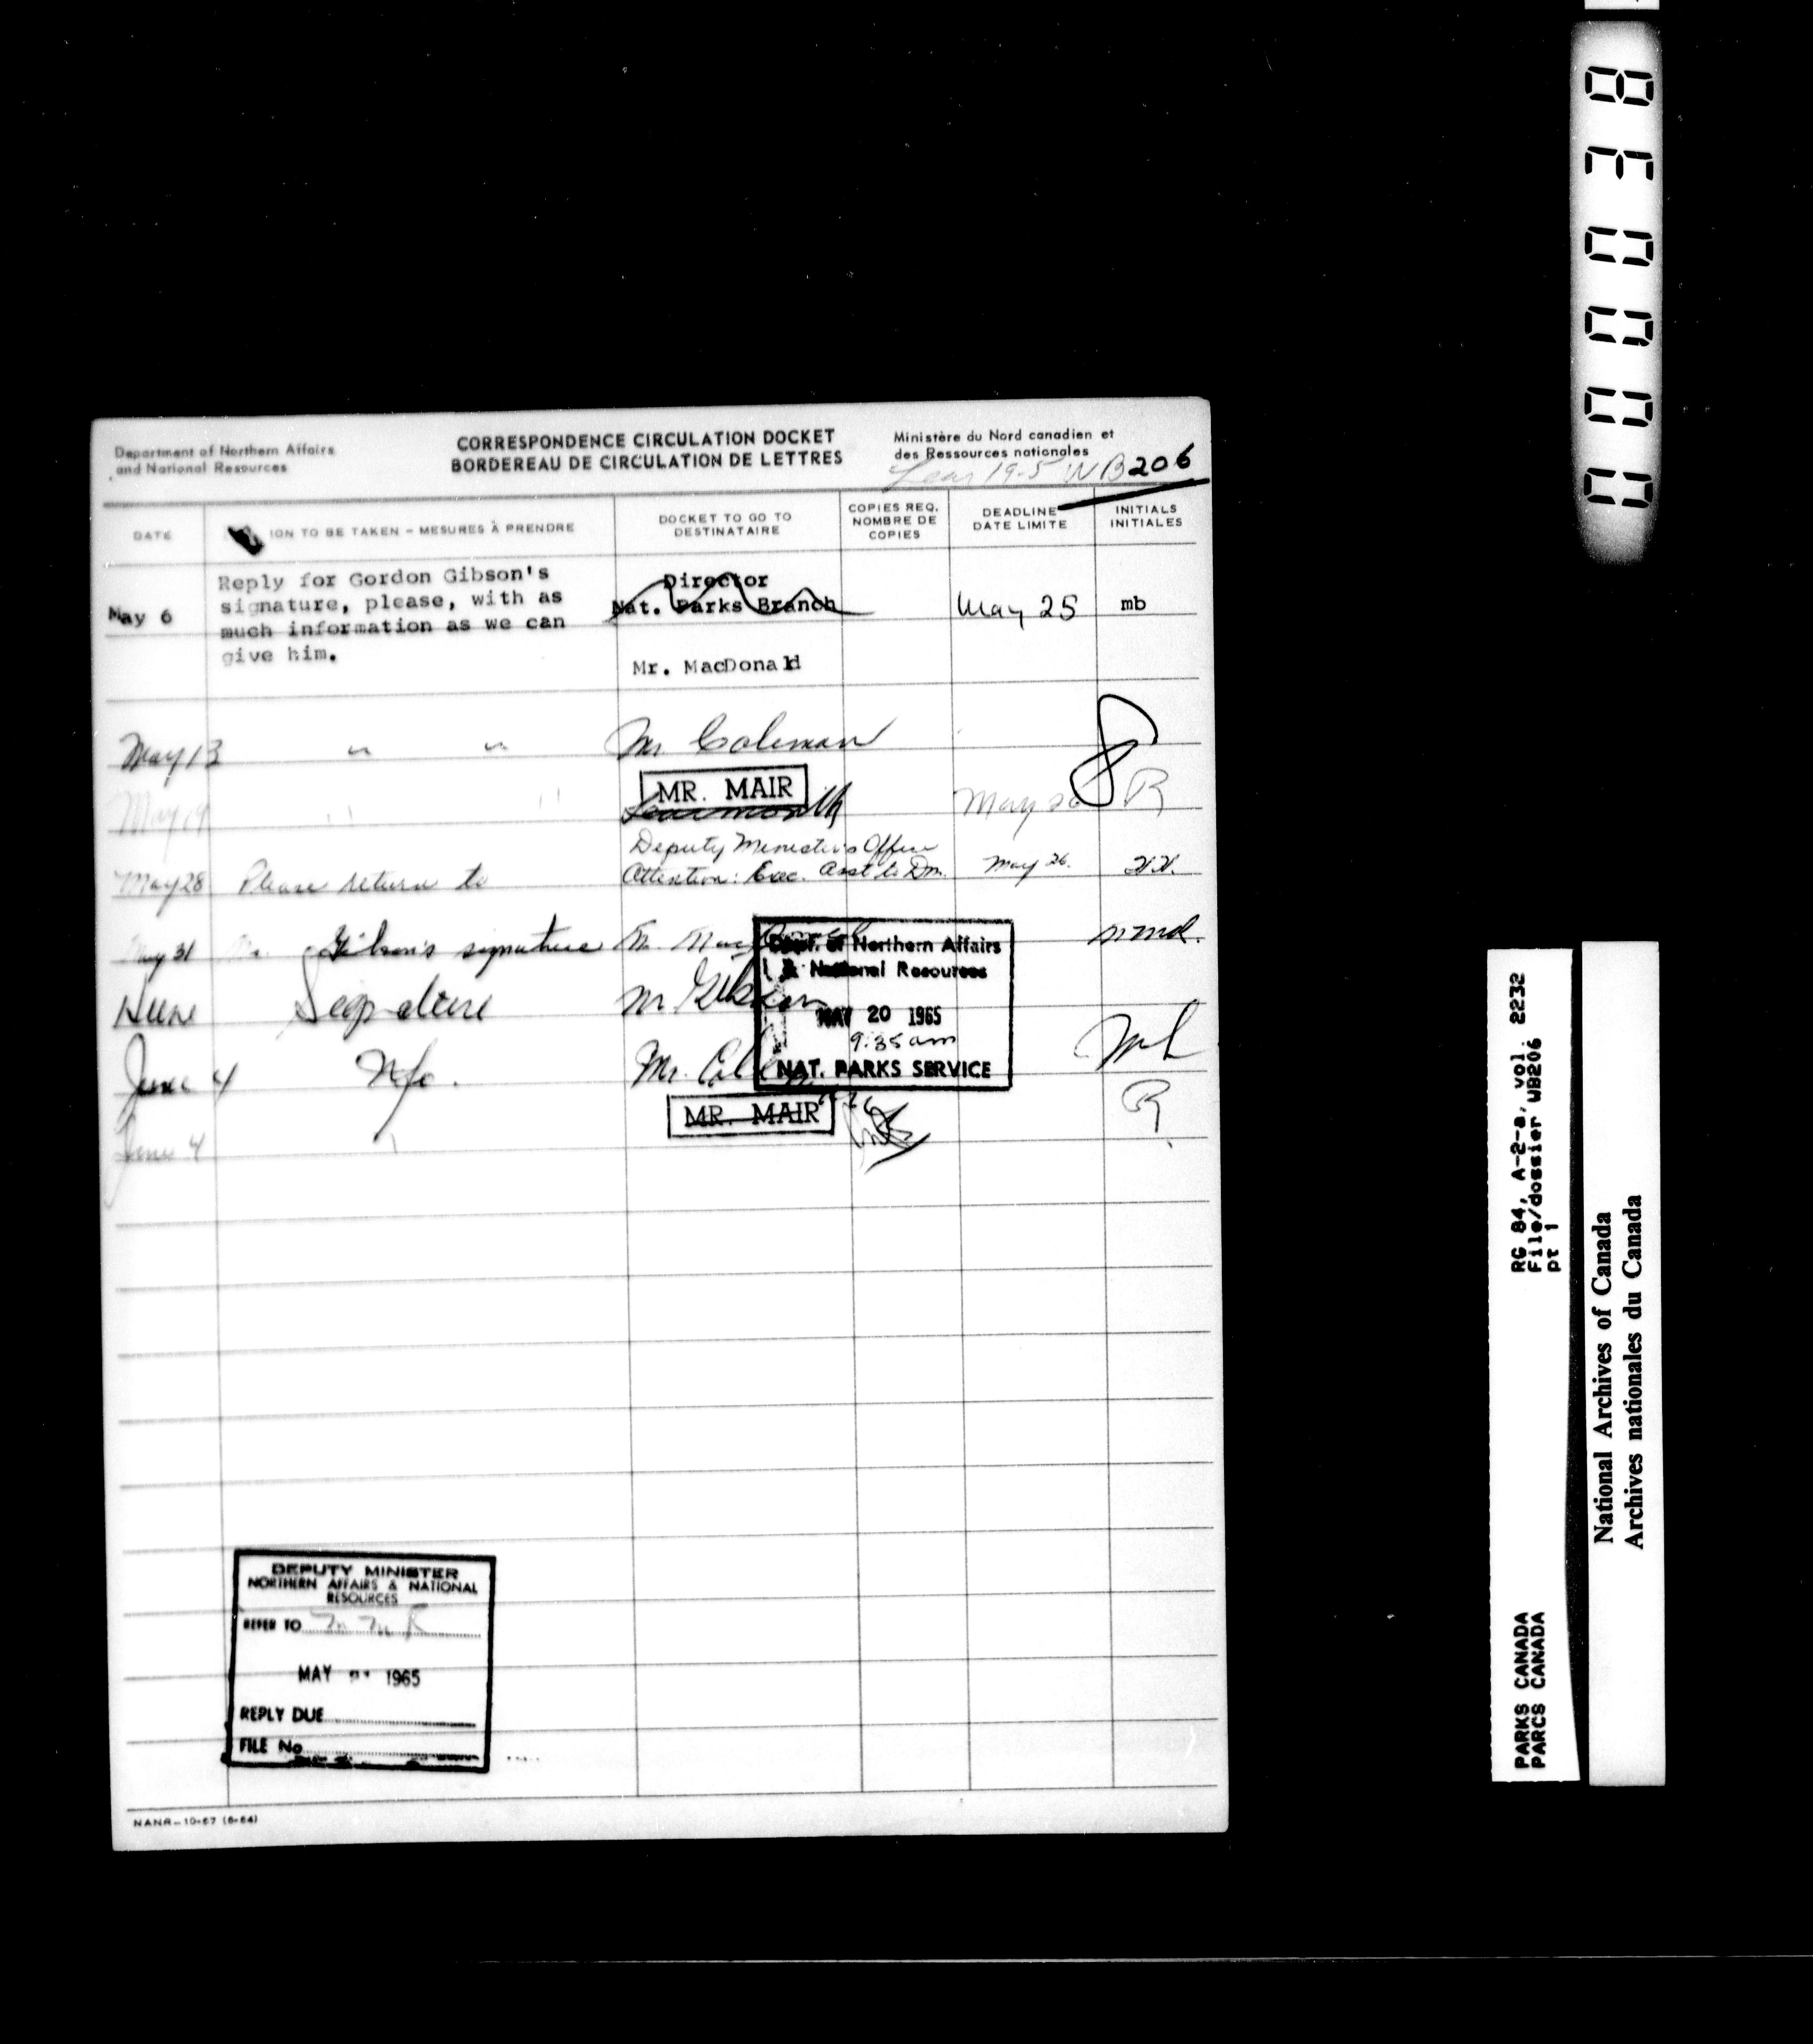 000038
Department of Northern Affairs
and National Resources
CORRESPONDENCE CIRCULATION DOCKET
BORDEREAU DE CIRCULATION DE LETTRES
Ministère du Nord canadien et
des Ressources nationales
19-5 WB206
DATE
ION TO BE TAKEN – MESURES À PRENDRE
DOCKET TO GO TO
DESTINATAIRE
COPIES REQ.
NOMBRE DE
COPIES
DEADLINE
DATE LIMITE
INITIALS
INITIALES
May 6
Reply for Gordon Gibson's
signature, please, with as
much information as we can
give him.
Director
Nat. Parks Branch
Mr. MacDonald
May 25
mb
May 13 " " Mr. Coleman
MR. MAIR
May 19 " " Learmonth May 26 R
Deputy Minister's Office
May 28 Please return to Attention: Exec. Asst to Dm. May 26.
May 31 Mr. Gibson's signature
June Signature Mr. Gibson
June 4 Mr.
MR. MAIR
June 4 R
Dept. of Northern Affairs
& National Resources
MAY 20 1965
9:35 am
NAT. PARKS SERVICE
DEPUTY MINISTER
NORTHERN AFFAIRS & NATIONAL
RESOURCES
REFER TO
MAY 1965
REPLY DUE
FILE No
NANR–10-67 (6-64)
RG 84, A-2-a, vol. 2232
File/dossier WB206
pt 1
PARKS CANADA
PARCS CANADA
National Archives of Canada
Archives nationales du Canada